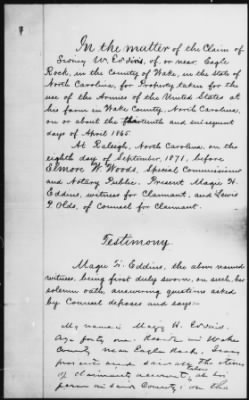 In the matter of the Claim of
Sidney W. Eddins, of, or near, Eagle
Rock, in the County of Wake, in the State of
North Carolina, for Property taken for the
use of the Armies of the United States at
his farm in Wake County, North Carolina
on or about the thirteenth and subsequent
days of April 1865
At Raleigh, North Carolina, on the
eighth day of September, 1871, before
Elmore W. Woods, Special Commissioner
and Notary Public. Present Magie H.
Eddins, witness for Claimant, and Lewis
P. Olds, of Counsel for Claimant.
Testimony
Magie H. Eddins, the above named
witness, being first duly sworn, on such, his
solemn oath, answering questions asked
by Counsel deposes and says—
My name is Magy H. Eddins.
Age forty one. Reside in Wake
County near Eagle Rock. I was
present and saw the items
of claimants account, taken at his
farm in said County, on the